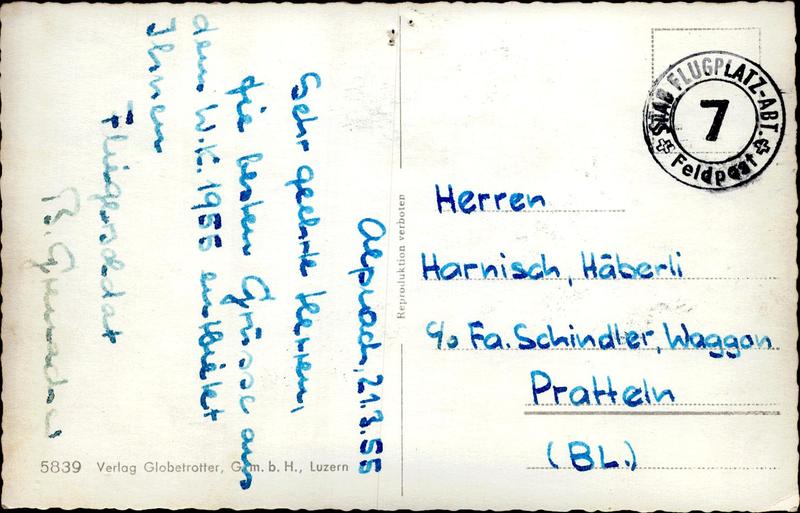 Alpnach, 21.3.55
Sehr geehrte Herren,
die besten Grüsse aus
dem W.K. 1955 entbietet
Ihnen
Fliegersoldat
B.
5839 Verlag Globetrotter, G.m.b.H., Luzern
Reproduktion verboten
STAB FLUGPLATZ-ABT.
7
Feldpost
Herren
Harnisch, Häberli
c/o Fa. Schindler, Waggon
Pratteln
(BL.)